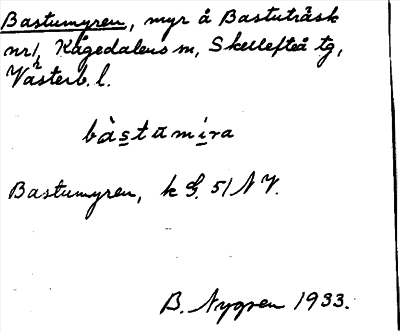 Bastumyren, myr å Bastuträsk
nr 1, Kågedalens sn, Skellefteå tg,
Västerb. l.
bàstamira
Bastumyren, k G. 51 NV.
B. Nygren 1933.